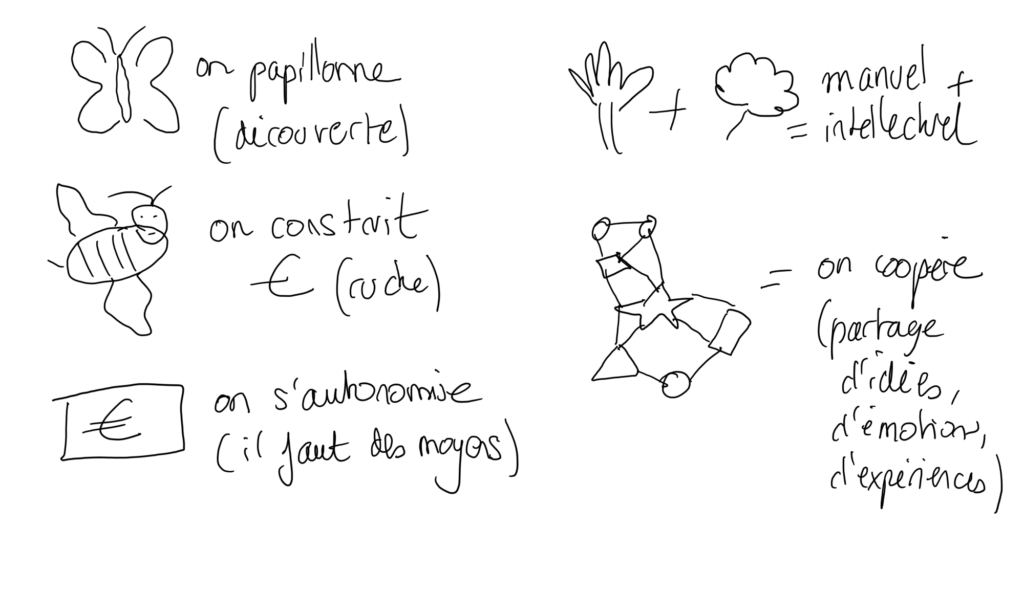 on papillonne
(découverte)
on construit
€ (ruche)
€
on s'autonomise
(il faut des moyens)
+
manuel +
= intellectuel
= on coopère
(partage
d'idées,
d'émotion,
d'expériences)